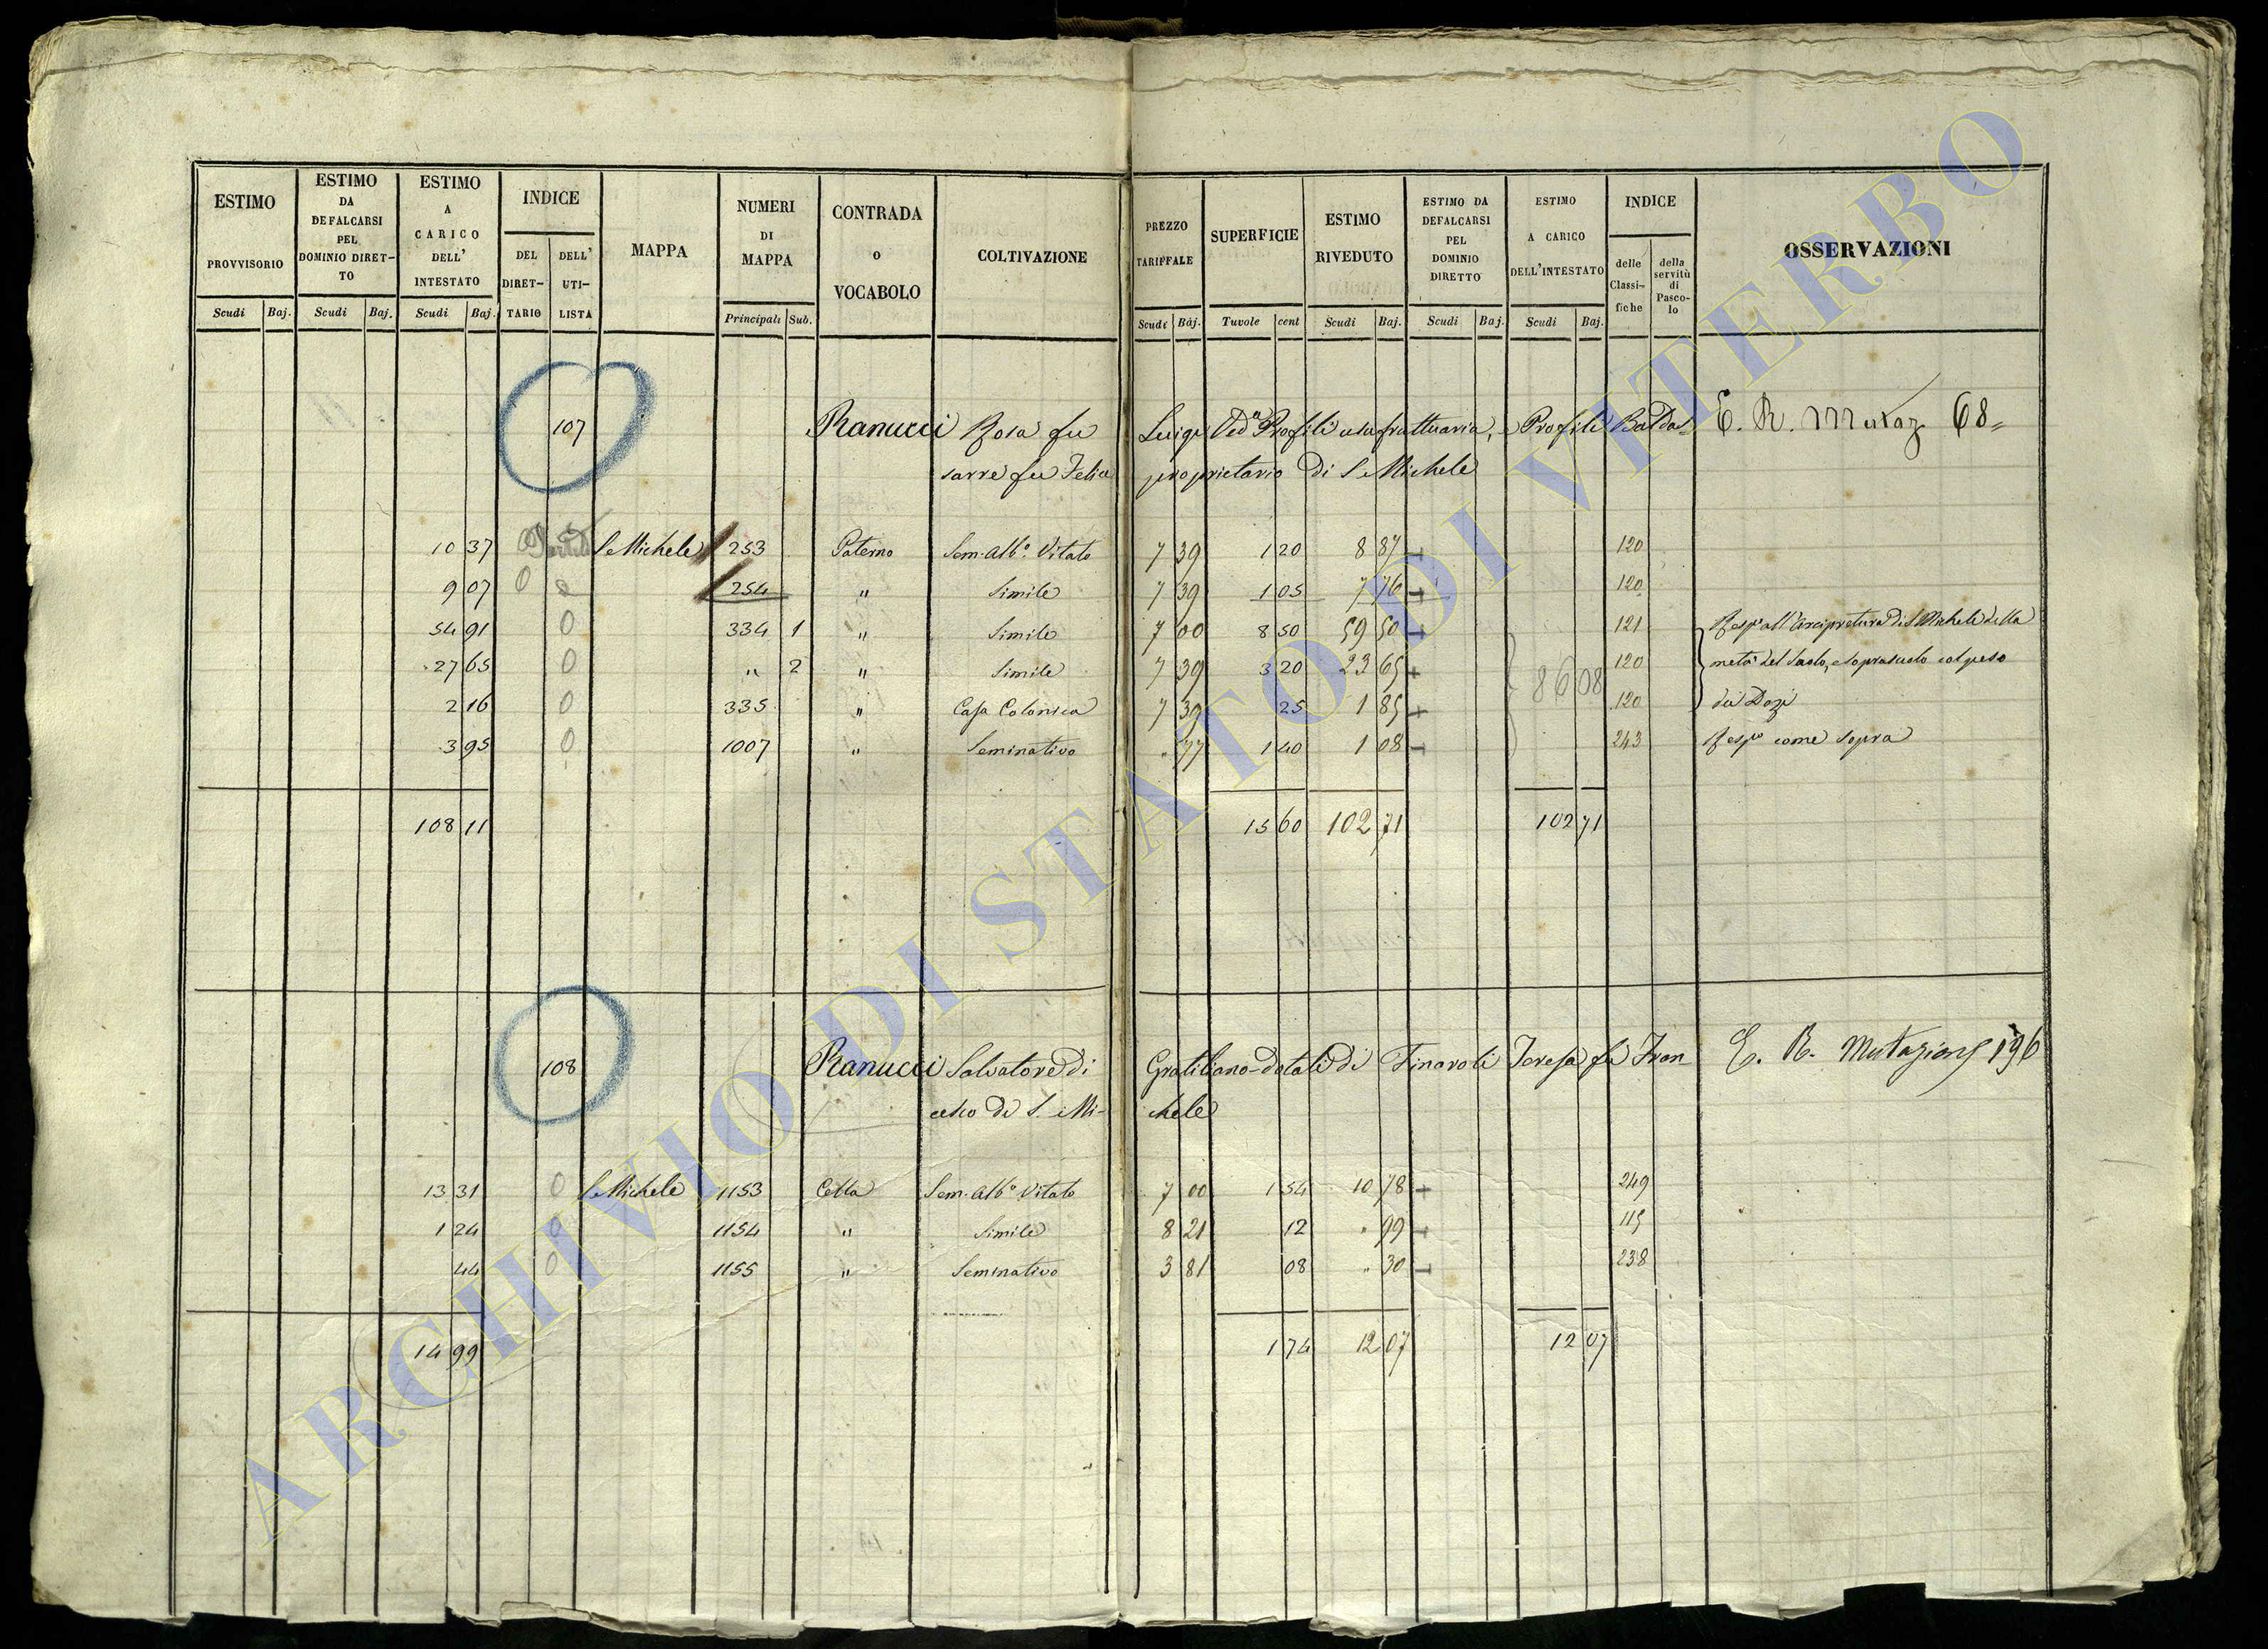 ESTIMO PROVVISORIO Scudi Baj.
ESTIMO DA DEFALCARSI PEL DOMINIO DIRET-TO Scudi Baj.
ESTIMO A CARICO DELL' INTESTATO Scudi Baj.
INDICE DEL DIRET-TARIO DELL' UTI-LISTA
MAPPA
NUMERI DI MAPPA Principali Sub.
CONTRADA o VOCABOLO
COLTIVAZIONE
PREZZO TARIFFALE Scudi Baj.
SUPERFICIE Tavole cent
ESTIMO RIVEDUTO Scudi Baj.
ESTIMO DA DEFALCARSI PEL DOMINIO DIRETTO Scudi Baj.
ESTIMO A CARICO DELL'INTESTATO Scudi Baj.
INDICE delle Classi-fiche della servitù di Pasco-lo
OSSERVAZIONI
107 Ranucci Rosa fu Luigi Ved.a Profili usufruttuaria, e Profili Balda- E. R. Mutaz 68
sarre fu Felice proprietario di S. Michele
10 37 S. Michele 253 Paterno Sem. Alb.o Vitato 7 39 1 20 8 87 120
9 07 0 254 " Simile 7 39 1 05 7 76 120
54 91 0 334 1 " Simile 7 00 8 50 59 50 121 Resp.o all'Arcipretura di S. Michele della
27 65 0 " 2 " Simile 7 39 3 20 23 65 120 metà del Suolo, e soprasuolo col peso
2 16 0 335 " Casa Colonica 7 39 25 1 85 86 08 120 dei Dazi
3 95 0 1007 " Seminativo " 77 1 40 1 08 243 Resp.o come sopra
108 11 15 60 102 71 102 71
108 Ranucci Salvatore di Gratiliano dotali di Finaroli Teresa fu Fran E. R. Mutazione 196
cesco di S. Mi- chele
13 31 0 S. Michele 1153 Cella Sem. Alb.o Vitato 7 00 1 54 10 78 249
1 24 0 1154 " Simile 8 21 12 " 99 115
44 0 1155 " Seminativo 3 81 08 " 30 238
14 99 1 74 12 07 12 07
ARCHIVIO DI STATO DI VITERBO